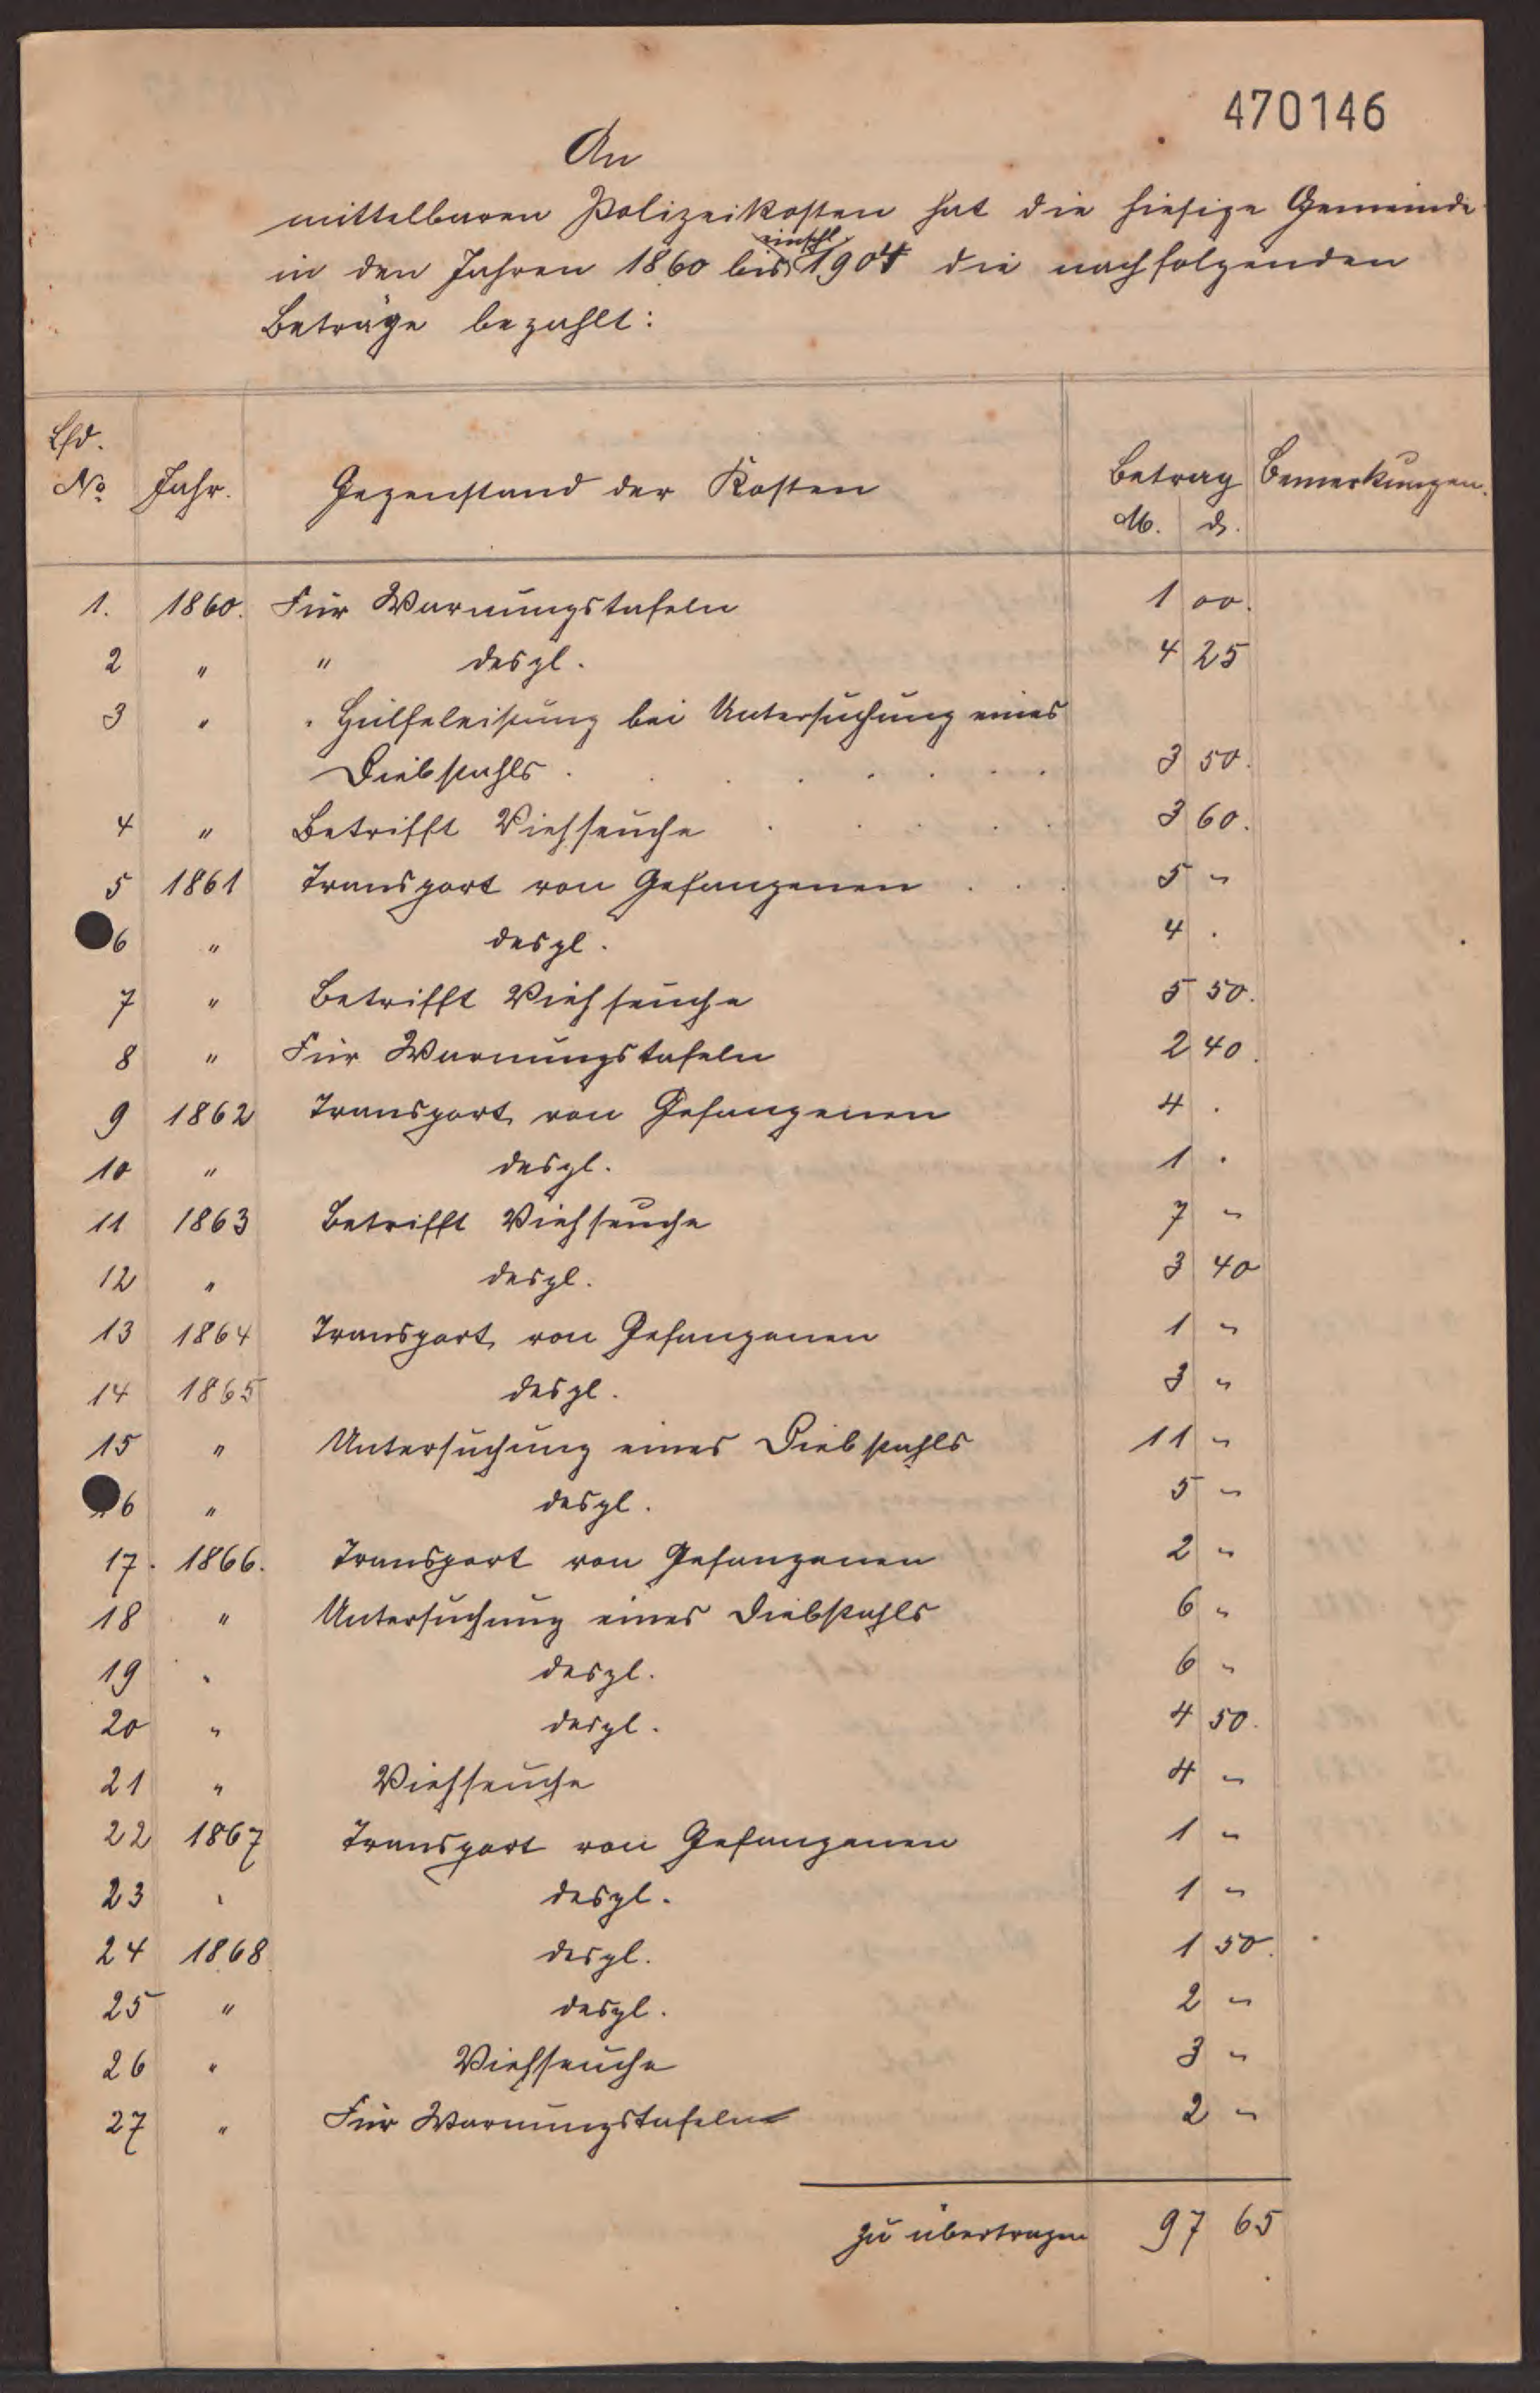 470146
An
mittelbaren Polizeikosten hat die hiesige Gemeinde
in den Jahren 1860 bis einschl. 1904 die nachfolgenden
Beträge bezahlt:
Lfd. No Jahr. Gegenstand der Kosten Betrag M. d. Bemerkungen.
1. 1860. Für Warnungstafeln 1 00.
2 " " desgl. 4 25
3 " " Hülfeleistung bei Untersuchung eines
Diebstahls . . . . . . 3 50.
4 " Betrifft Viehseuche . . . . 3 60.
5 1861 Transport von Gefangenen . . . 5 "
6 " desgl. 4 .
7 " Betrifft Viehseuche 5 50.
8 " Für Warnungstafeln 2 40.
9 1862 Transport von Gefangenen 4 .
10 " desgl. 1 .
11 1863 Betrifft Viehseuche 7 "
12 " desgl. 3 40
13 1864 Transport von Gefangenen 1 "
14 1865 desgl. 3 "
15 " Untersuchung eines Diebstahls 11 "
16 " desgl. 5 "
17. 1866. Transport von Gefangenen 2 "
18 " Untersuchung eines Diebstahls 6 "
19 " desgl. 6 "
20 " desgl. 4 50.
21 " Viehseuche 4 "
22 1867 Transport von Gefangenen 1 "
23 " desgl. 1 "
24 1868 desgl. 1 50.
25 " desgl. 2 "
26 " Viehseuche 3 "
27 " Für Warnungstafeln 2 "
zu übertragen 97 65